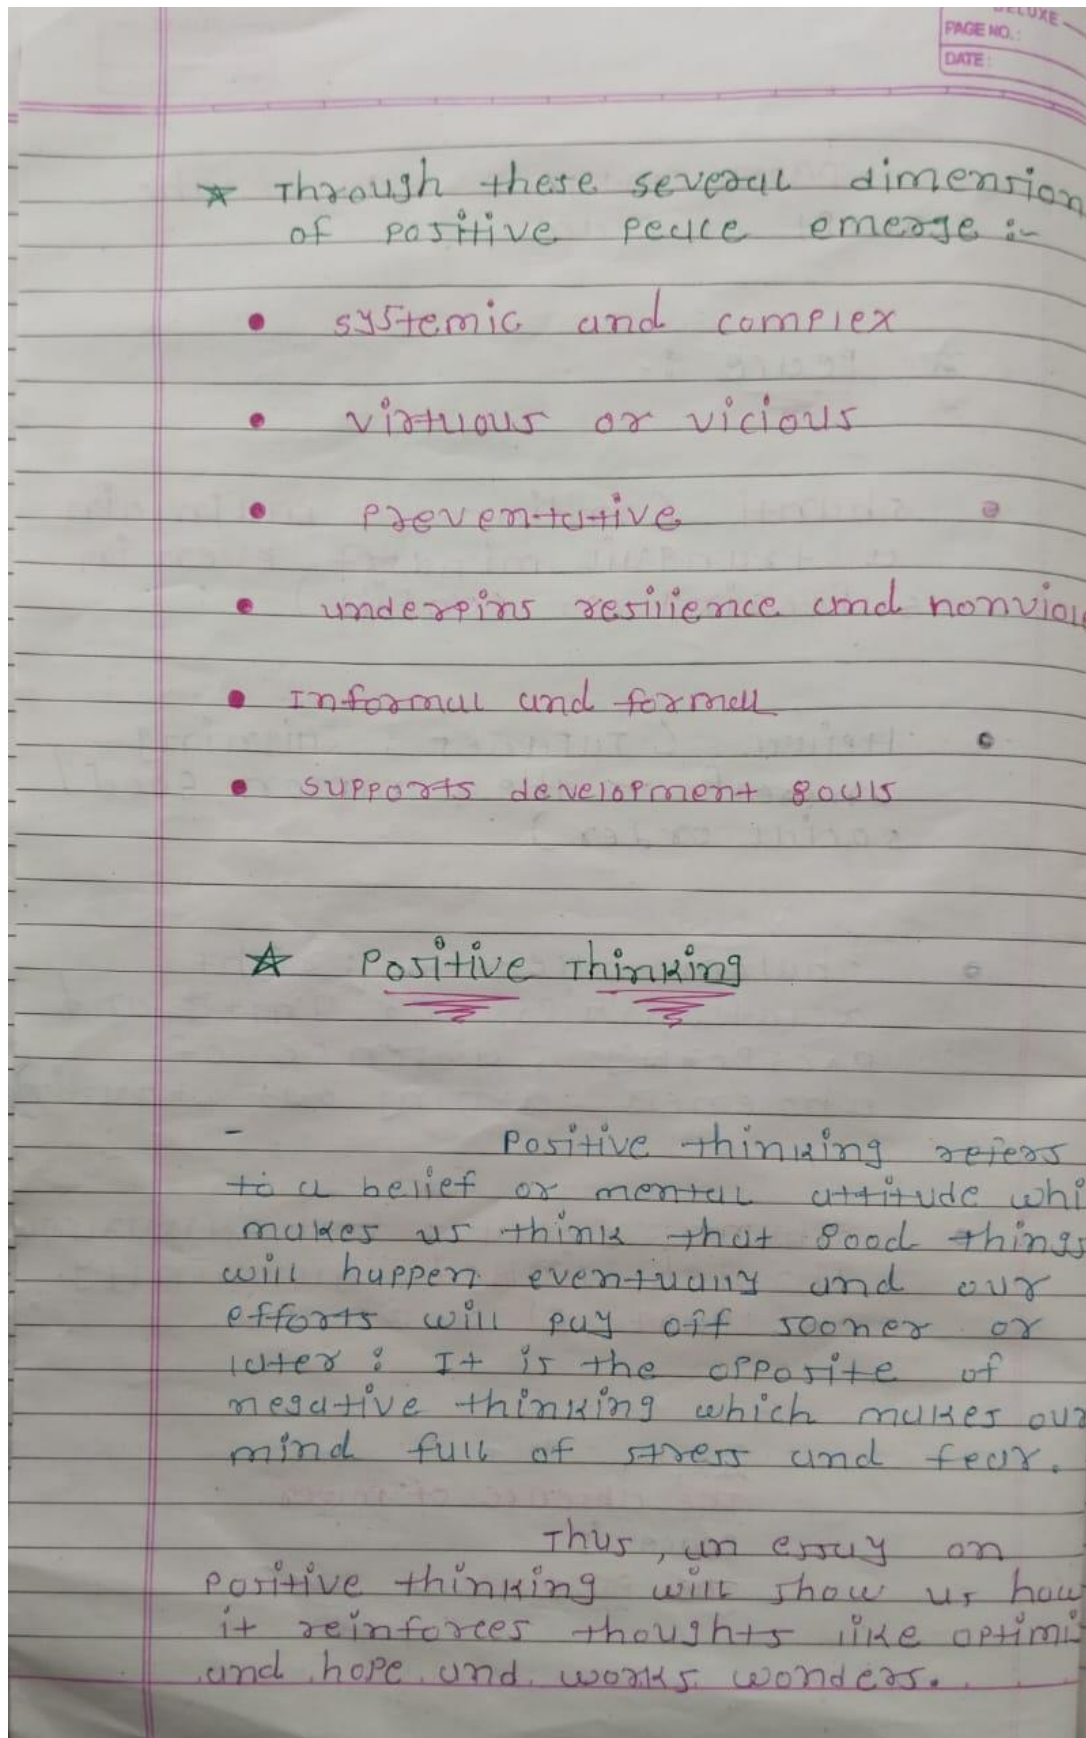 DELUXE
PAGE NO.:
DATE:
☆ Through these several dimension
of positive peace emerge :-
• systemic and complex
• virtuous or vicious
• preventative
• underpins resilience and nonviol
• Informal and formal
• supports development goals
☆ Positive Thinking
- Positive thinking refers
to a belief or mental attitude whi
makes us think that good things
will happen eventually and our
efforts will pay off sooner or
later : It is the opposite of
negative thinking which makes our
mind full of stress and fear.
Thus, an essay on
positive thinking will show us how
it reinforces thoughts like optimi
and hope and works wonders.